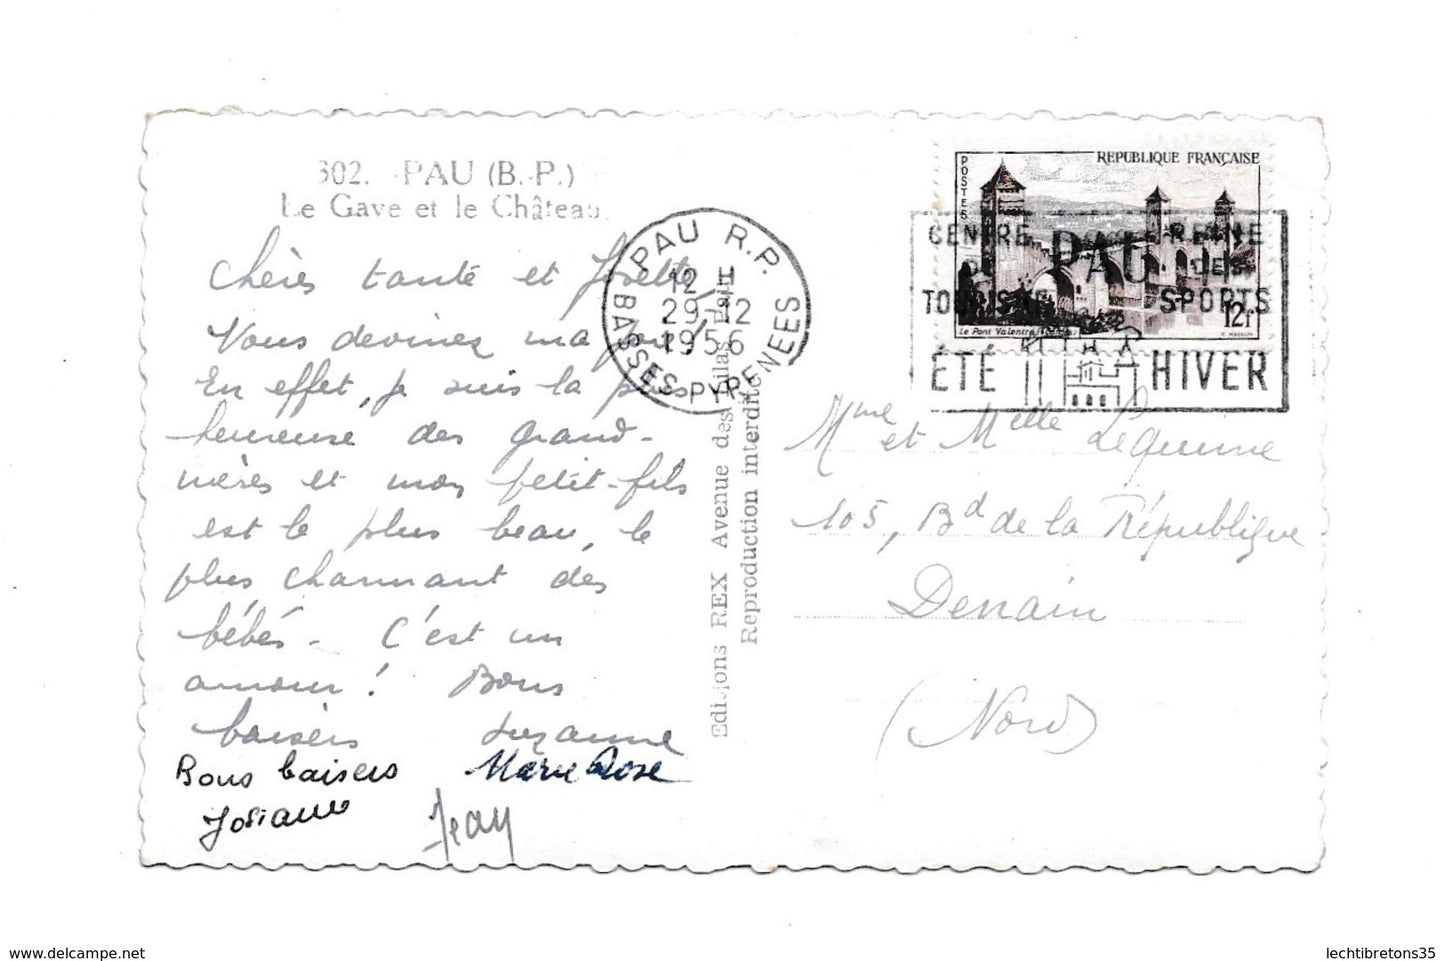 302. - PAU (B.-P.)
Le Gave et le Château.
Chères tante et Josette
Vous devinez ma joie!
En effet, je suis la plus
heureuse des grand-
mères et mon petit-fils
est le plus beau, le
plus charmant des
bébés - C'est un
amour! Bons
baisers Suzanne
Bons baisers Marie Rose
Josiane
Jean
PAU R.P.
12 H
29-12
1956
BASSES-PYRENEES
Editions REX Avenue des Lilas Pau
Reproduction interdite
POSTES
REPUBLIQUE FRANÇAISE
Le Pont Valentré
12f
CENTRE PAU REINE
DU DES
TOURISME SPORTS
ÉTÉ HIVER
Mme et Melle Lequenne
105, Bd de la République
Denain
(Nord)
www.delcampe.net
lechtibretons35